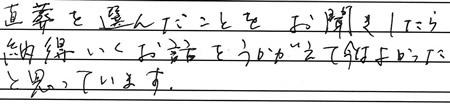 直葬を選んだことをお聞きしたら
納得いくお話をうかがえて今はよかった
と思っています。